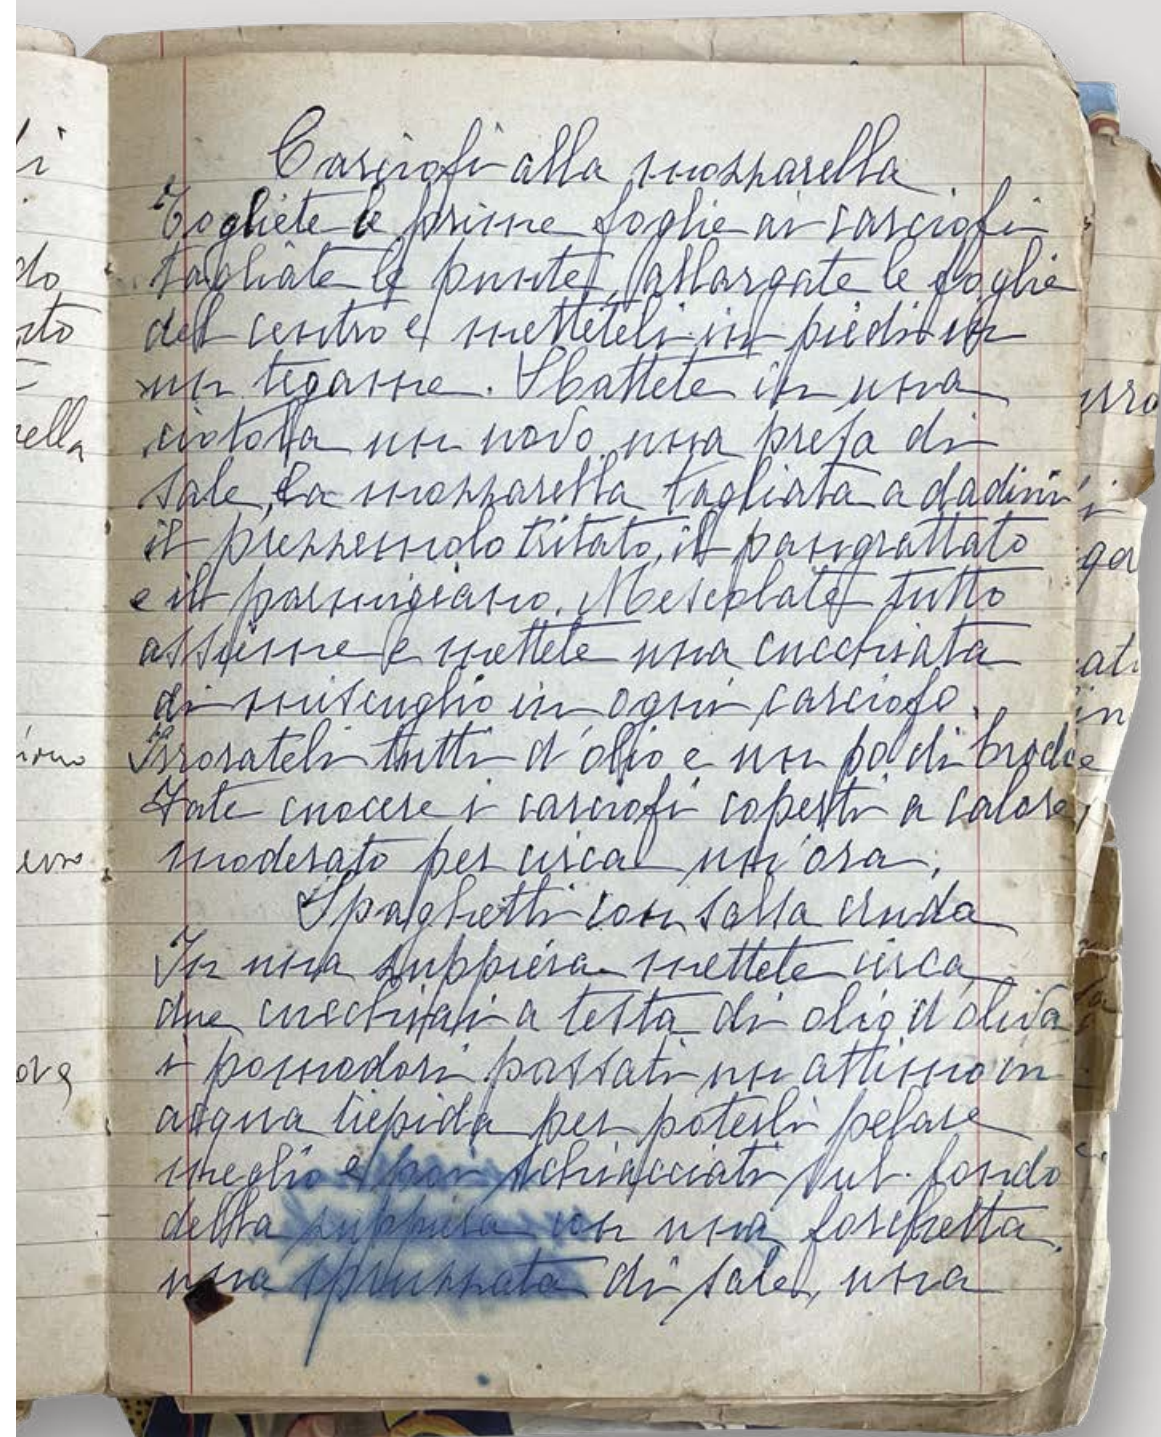 Carciofi alla mozzarella
Togliete le prime foglie ai carciofi
tagliate le punte, allargate le foglie
del centro e metteteli in piedi in
un tegame. Sbattete in una
ciotola un uovo una presa di
sale, la mozzarella tagliata a dadini
il prezzemolo tritato, il pangrattato
e il parmigiano. Mescolate tutto
assieme e mettete una cucchiata
di miscuglio in ogni carciofo.
Irrorateli tutti d'olio e un pò di brodo e
Fate cuocere i carciofi coperti a calore
moderato per circa un'ora.
Spaghetti con salsa cruda
In una zuppiera mettete circa
due cucchiai a testa di olio d'oliva
i pomodori passati un attimo in
acqua tiepida per poterli pelare
meglio e poi schiacciati sul fondo
della zuppiera con una forchetta.
una spruzzata di sale, una
do
sto
rella
ora